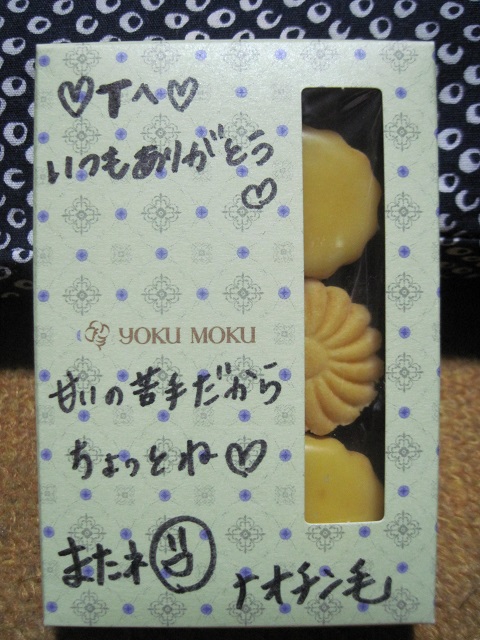 ♡Tへ♡
いつもありがとう
♡
YOKU MOKU
甘いの苦手だから
ちょっとね♡
またネ
ナオチン毛